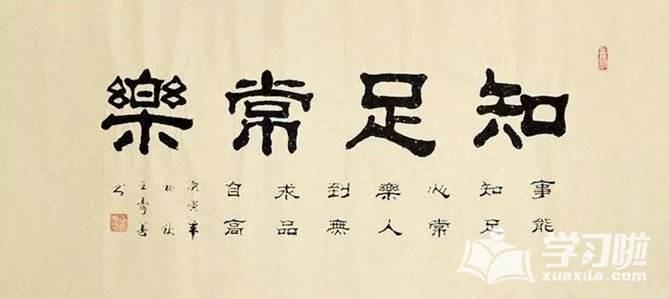 知足常樂
事能
知足
心常
樂人
到無
求品
自高
庚寅年
学习啦
xuexila.com